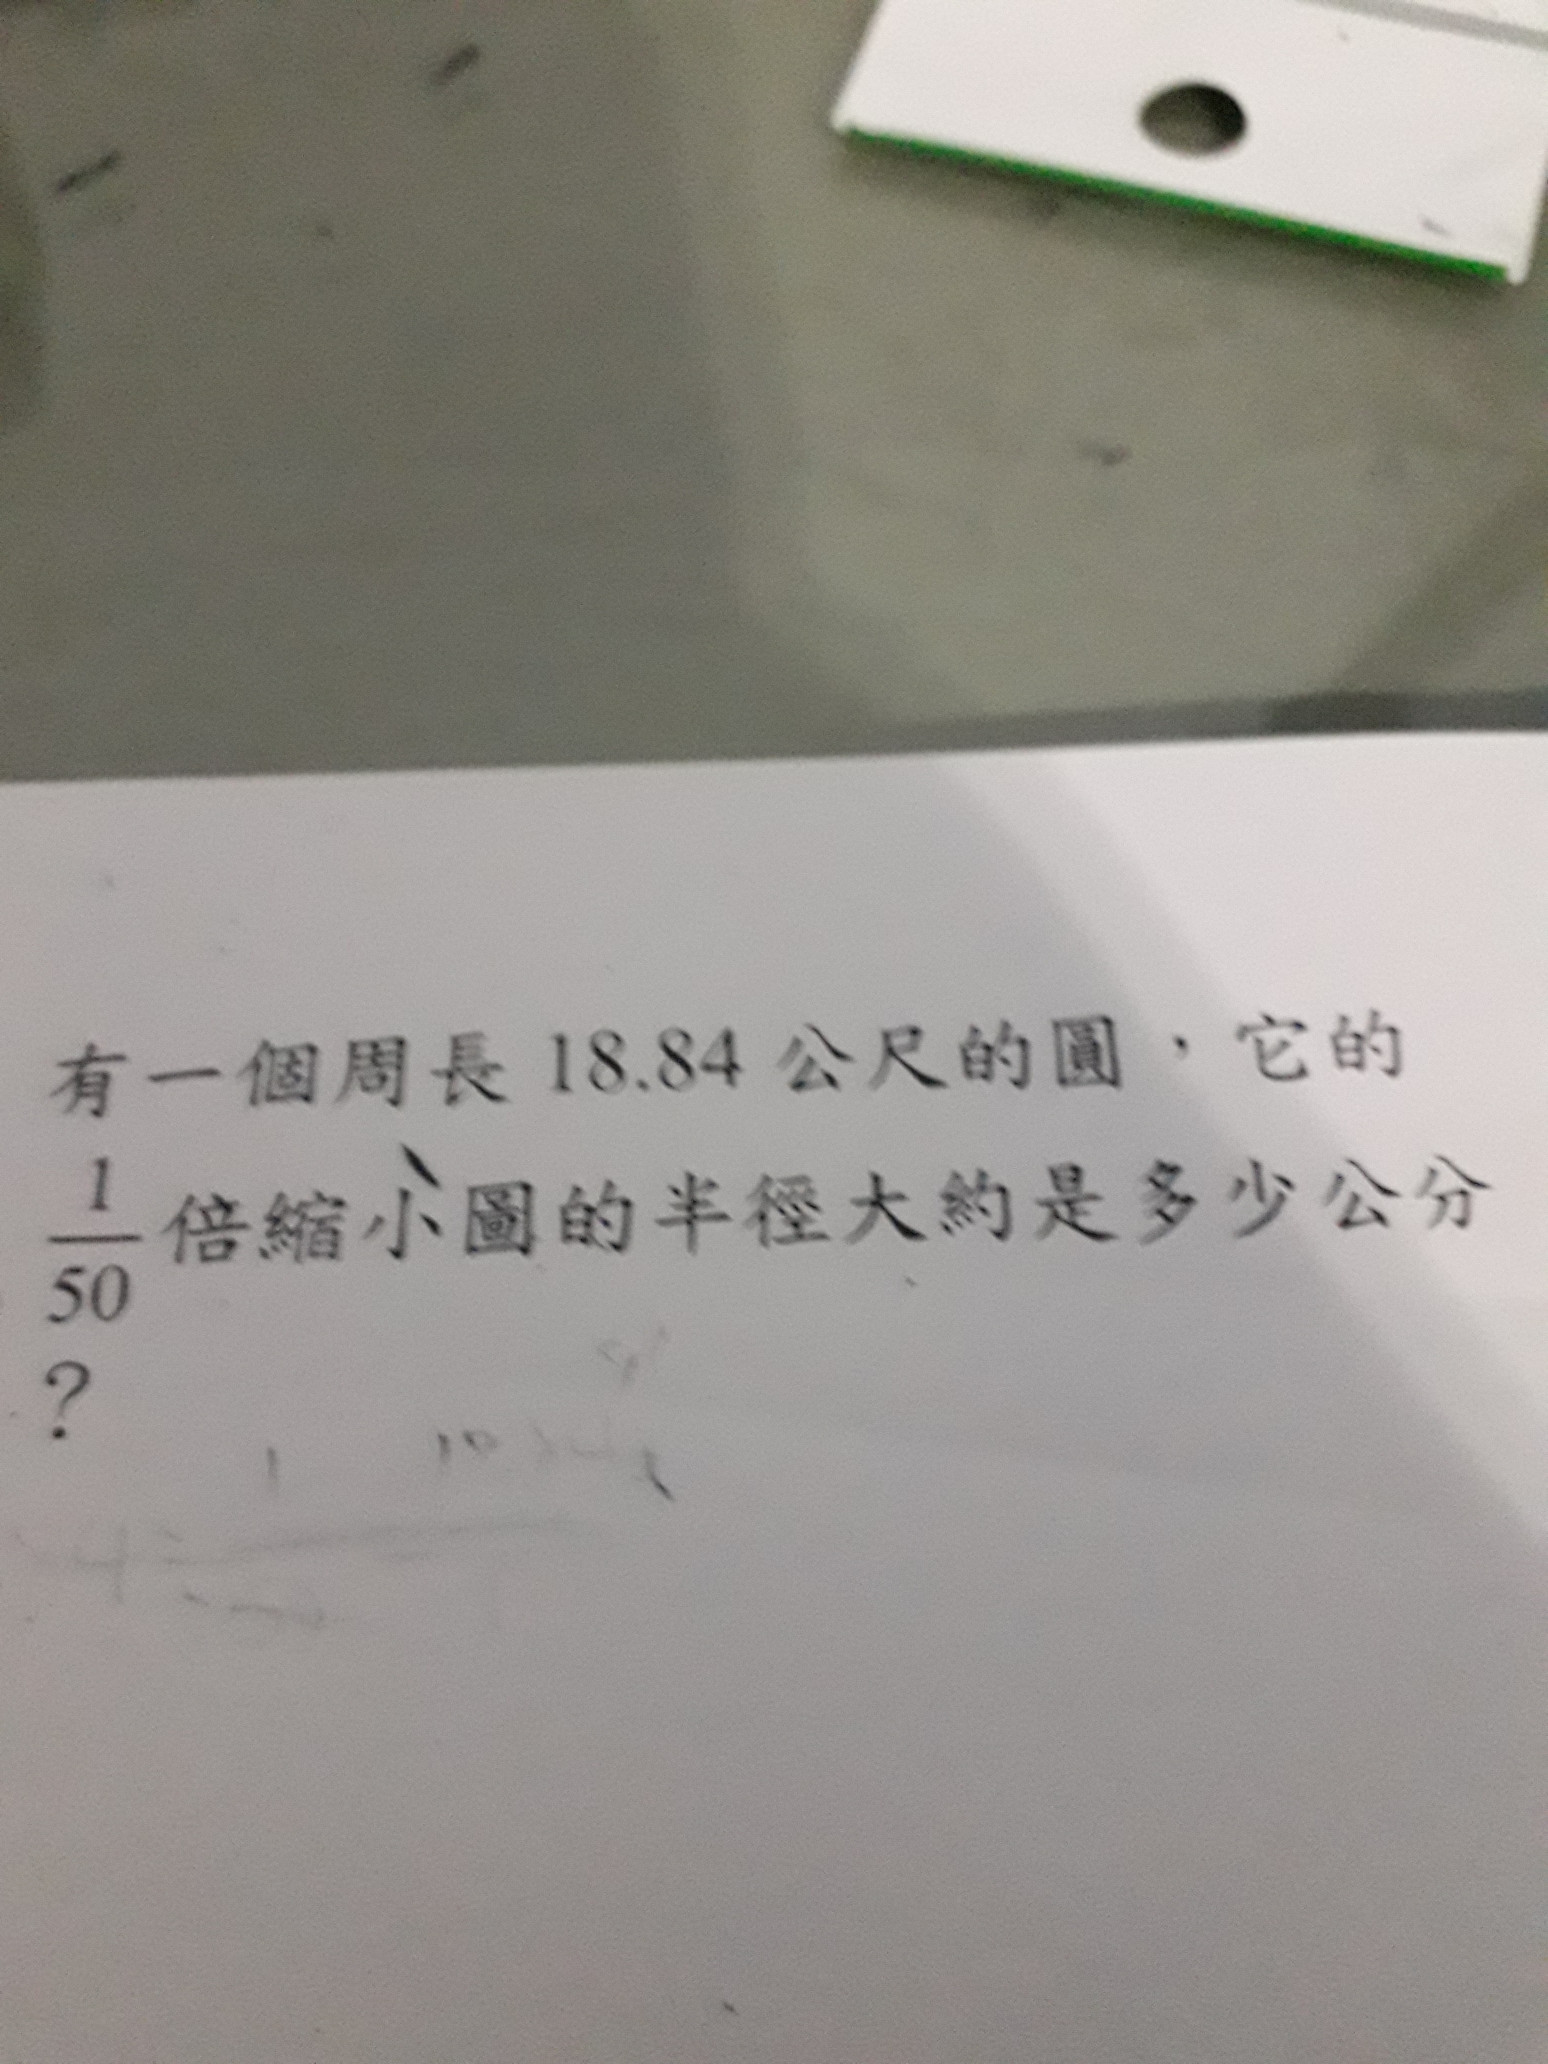 有一個周長 18.84 公尺的圓，它的
1/50 倍縮小圖的半徑大約是多少公分
?